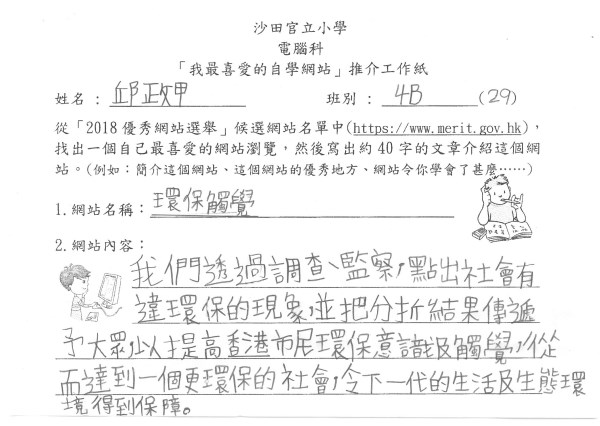 沙田官立小學
電腦科
「我最喜愛的自學網站」推介工作紙
姓名：邱政甲 班別：4B (29)
從「2018優秀網站選舉」候選網站名單中(https://www.merit.gov.hk)，
找出一個自己最喜愛的網站瀏覽，然後寫出約40字的文章介紹這個網
站。(例如：簡介這個網站、這個網站的優秀地方、網站令你學會了甚麼……)
1.網站名稱：環保觸覺
2.網站內容：
我們透過調查、監察，點出社會有
違環保的現象，並把分折結果傳遞
予大眾，以提高香港市民環保意識及觸覺，從
而達到一個更環保的社會，令下一代的生活及生態環
境得到保障。